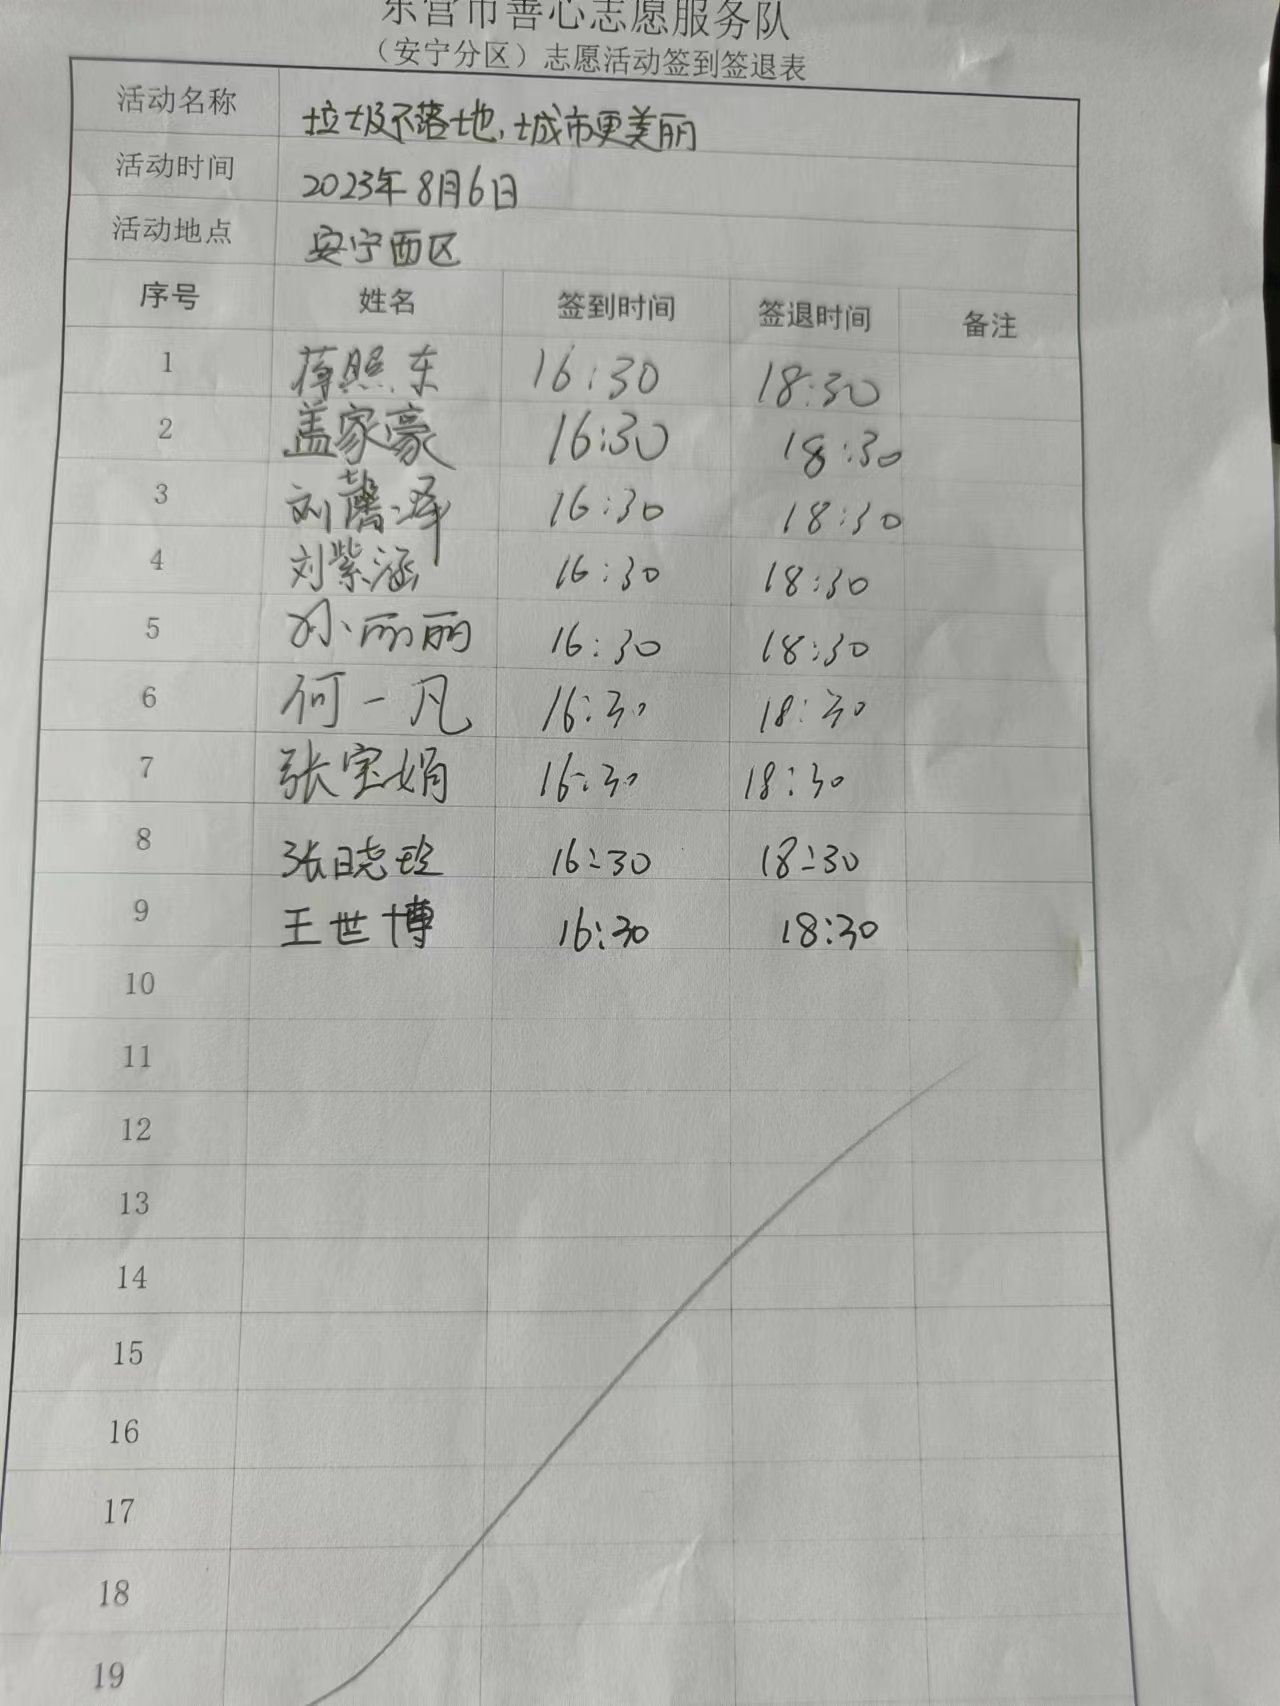 东营市善心志愿服务队
（安宁分区）志愿活动签到签退表
活动名称 垃圾不落地,城市更美丽
活动时间 2023年8月6日
活动地点 安宁西区
序号 姓名 签到时间 签退时间 备注
1 薄照东 16:30 18:30
2 盖家豪 16:30 18:30
3 刘馨泽 16:30 18:30
4 刘紫涵 16:30 18:30
5 孙丽丽 16:30 18:30
6 何一凡 16:30 18:30
7 张宝娟 16:30 18:30
8 张晓玲 16:30 18:30
9 王世博 16:30 18:30
10
11
12
13
14
15
16
17
18
19